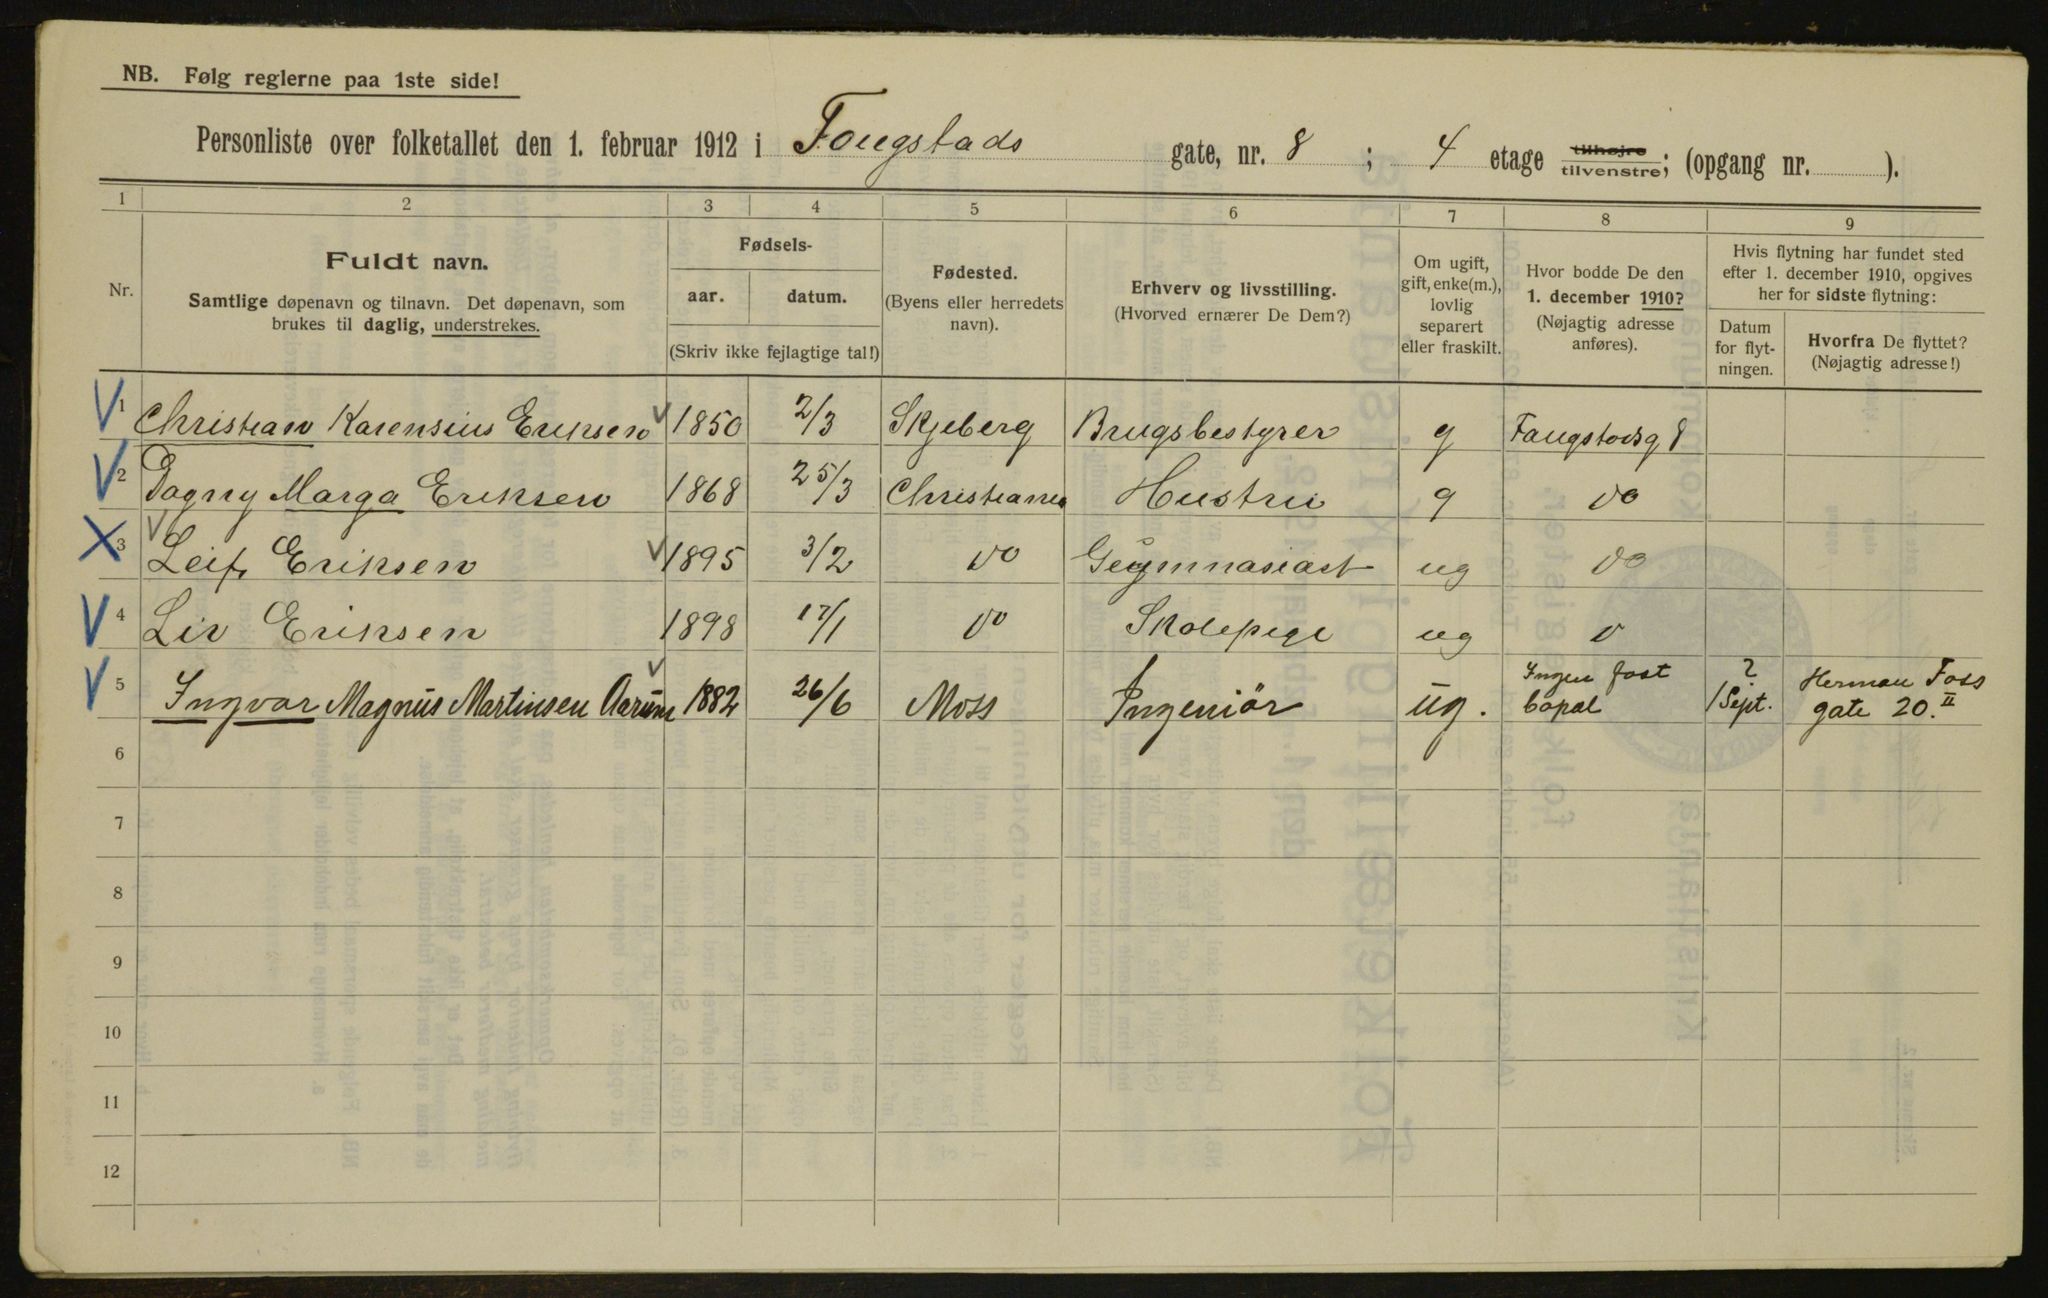 NB. Følg reglerne paa 1ste side!
Personliste over folketallet den 1. februar 1912 i Fougstads gate, nr. 8 ; 4 etage tilhøjre tilvenstre; (opgang nr. ).
1 2 3 4 5 6 7 8 9
Nr.
Fuldt navn.
Samtlige døpenavn og tilnavn. Det døpenavn, som
brukes til daglig, understrekes.
Fødsels-
aar. datum.
(Skriv ikke fejlagtige tal!)
Fødested.
(Byens eller herredets
navn).
Erhverv og livsstilling.
(Hvorved ernærer De Dem?)
Om ugift,
gift, enke(m.),
lovlig
separert
eller fraskilt.
Hvor bodde De den
1. december 1910?
(Nøjagtig adresse
anføres).
Hvis flytning har fundet sted
efter 1. december 1910, opgives
her for sidste flytning:
Datum
for flyt-
ningen.
Hvorfra De flyttet?
(Nøjagtig adresse!)
V 1 Christian Karensius Eriksen V 1850 2/3 Skjeberg Brugsbestyrer g Faugstadsg 8
V 2 Dagny Marga Eriksen 1868 25/3 Christiania Hustru g do
X 3 V Leif Eriksen V 1895 3/2 do Gymnasiast ug do
V 4 Liv Eriksen 1898 17/1 do Skolepige ug d
V 5 Ingvar Magnus Martinsen Aarum V 1882 26/6 Moss Ingeniör ug. Ingen fast bopæl ? /Sept. Herman Foss gate 20. II
6
7
8
9
10
11
12